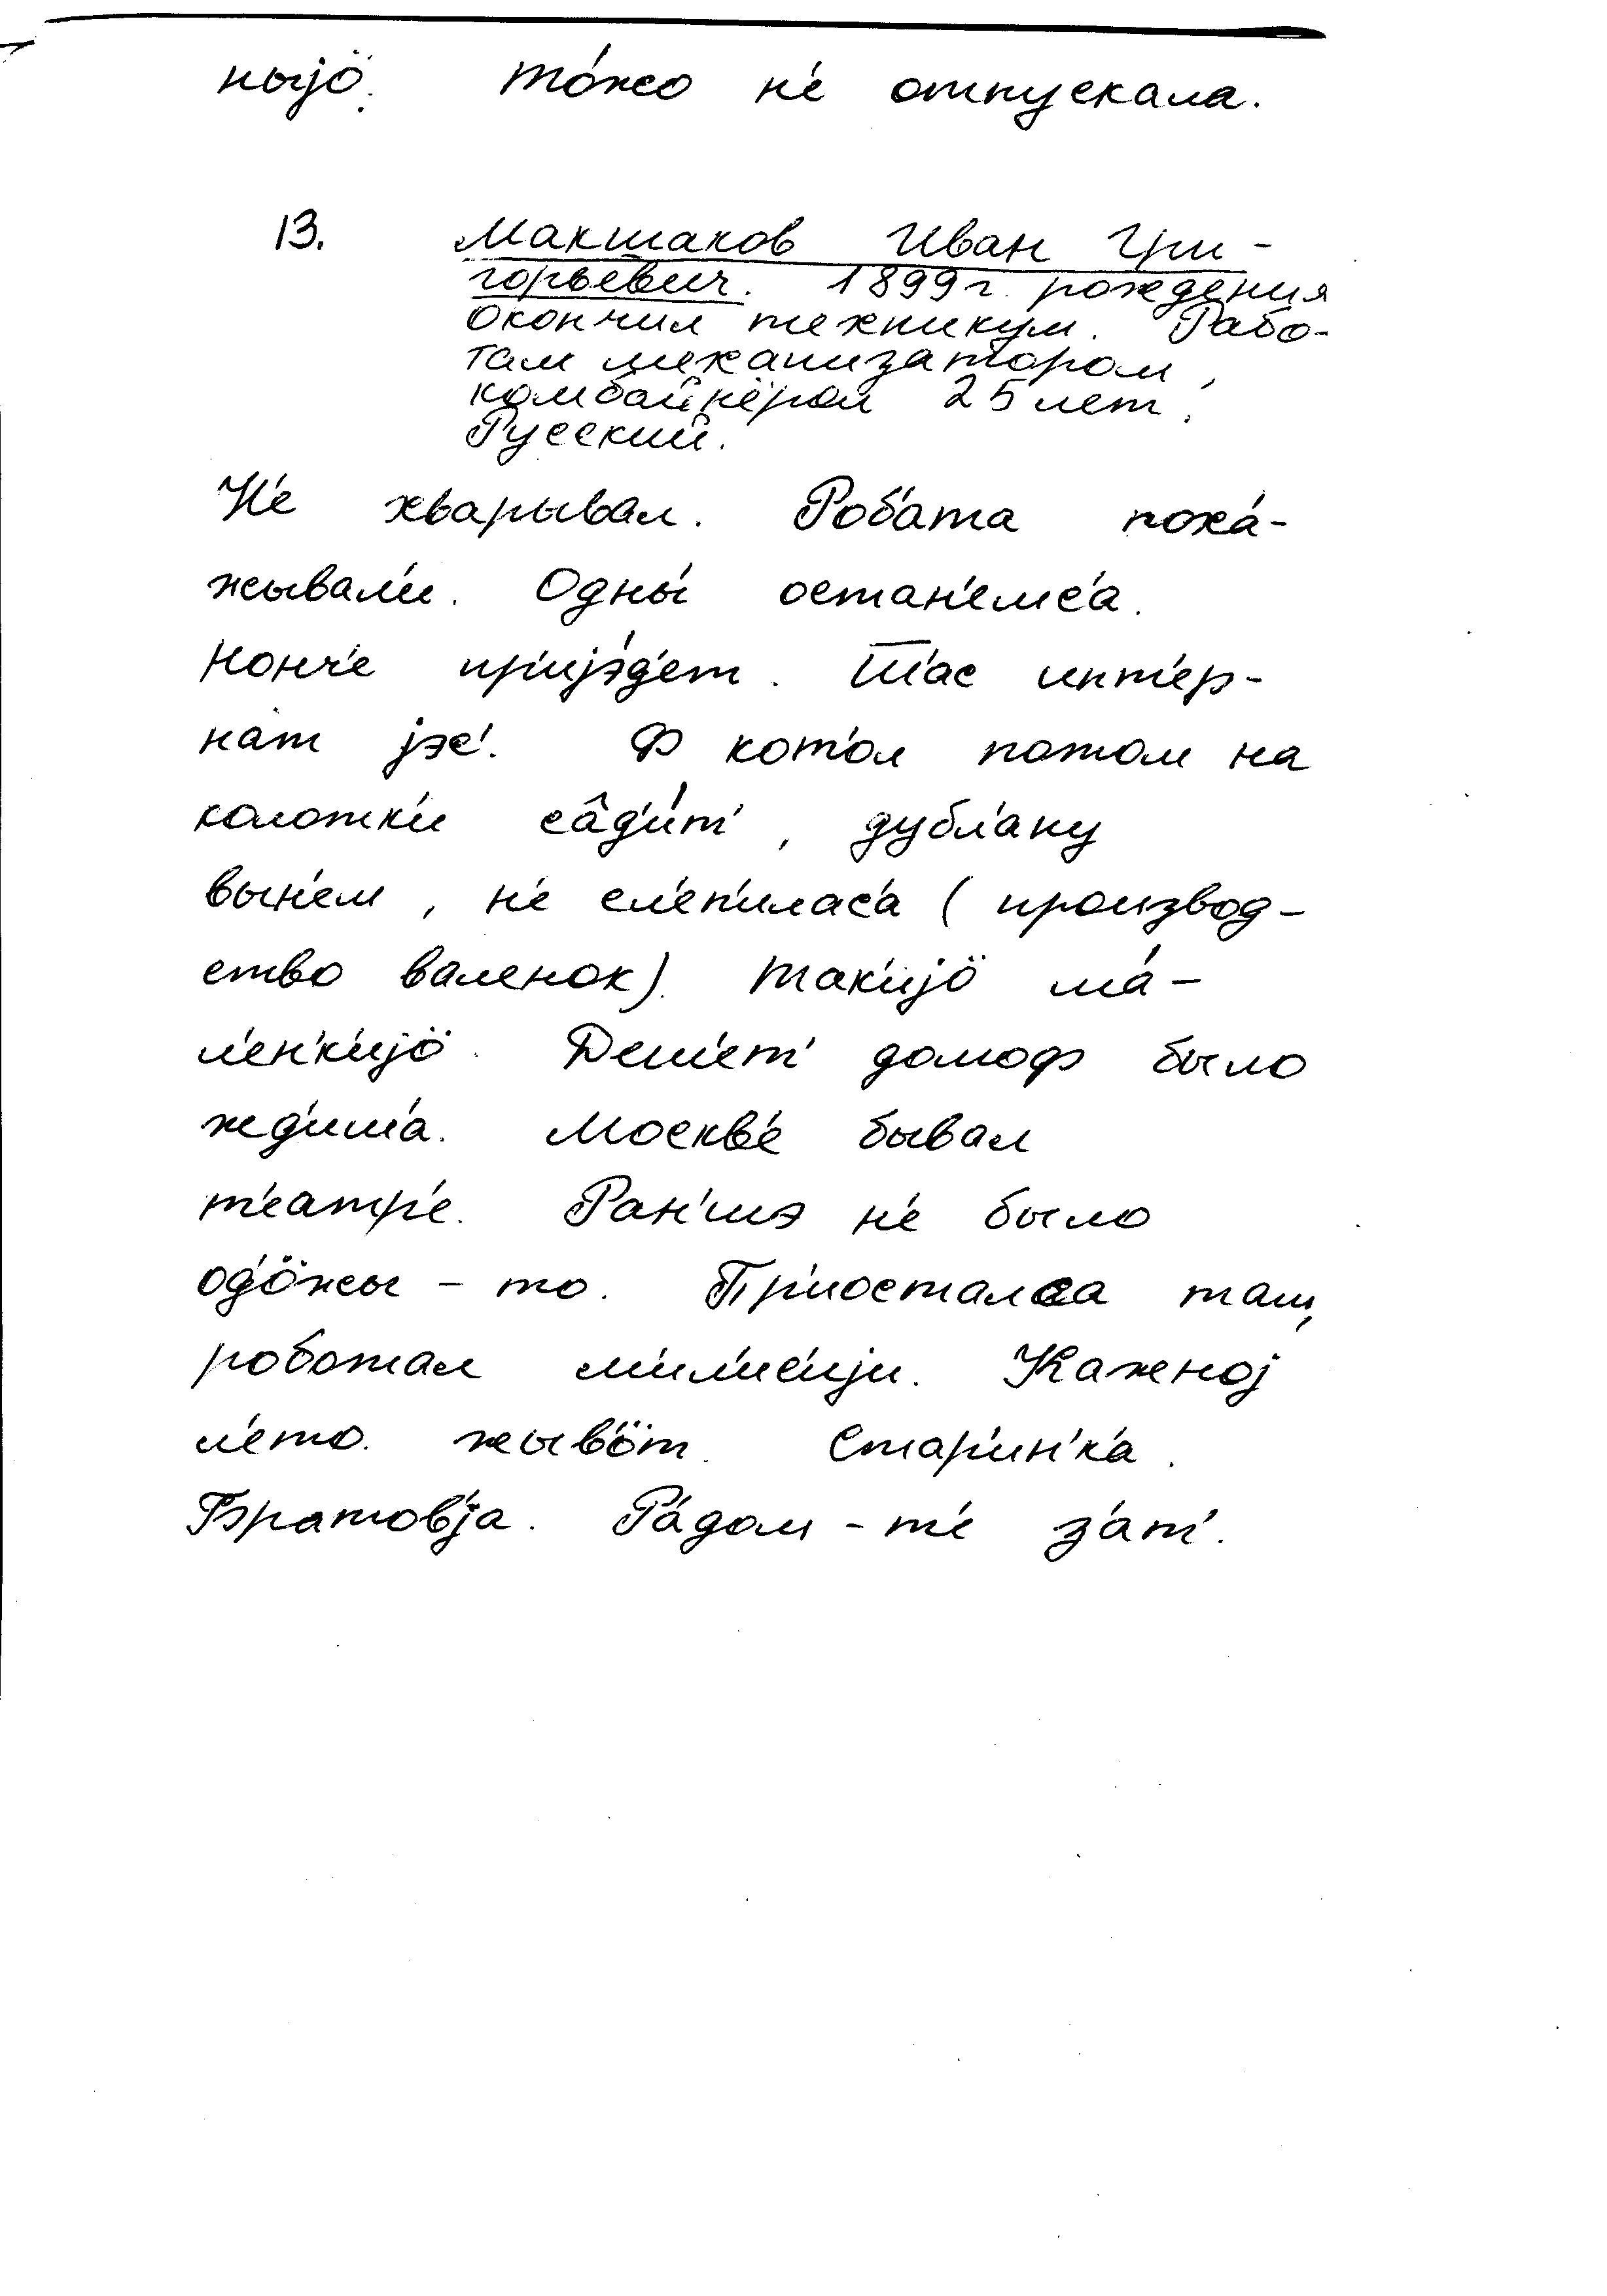 ныjӧ. то́жо н'е отпускала.
13. Макшаков Иван Гри-
горьевич. 1899 г. рождения
Окончил техникум. Рабо-
тал механизатором,
комбайнёром 25 лет.
Русский.
Н'е хварывал. Роб'ата поха́-
жывал'и. Одны́ остан'емс'а.
Нонч'е пр'иjэ́д'ет. Т'ас инт'ер-
нат jэс'. Ф кот'ол потом на
колотк'и са̂д'и́т', дубл'аку
вын'ем, н'е сл'еп'илас'а (производ-
ство валенок). Так'иjӧ ма́-
л'ен'к'иjӧ. Дешет' домоф было
жд'ил'а. Москв'е бывал
т'еатр'е. Ран'шэ н'е было
од'ӧжы - то. Пр'иосталса там,
роботал м'ил'ис'иjи. Кажноj
л'ето жыв'ӧт. Стар'ин'к'а.
Братов'jа. Р'а́дом - т'е з'ат'.